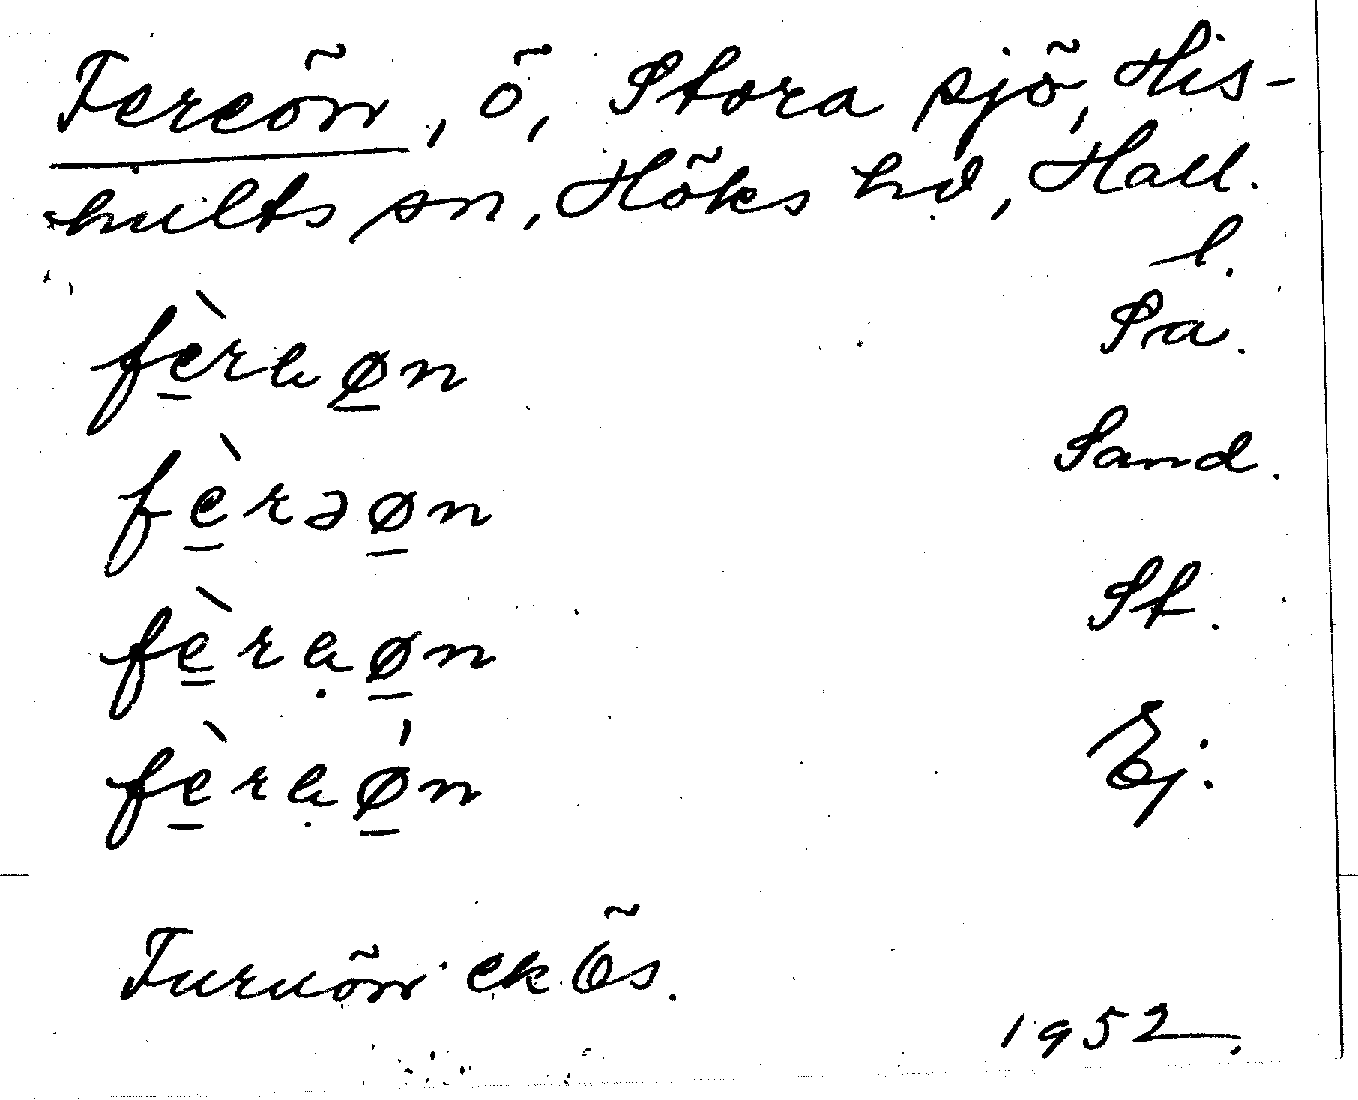 Fereön, ö, Stora sjö, His-
hults sn, Höks hd, Hall.
l.
fèraøn Pa.
fèrəøn Sand.
fèraøn St.
fèraǿn Ej.
Furuön ek Ös.
1952.